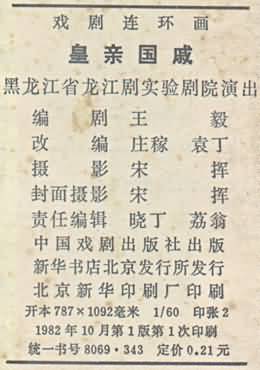 戏剧连环画
皇亲国戚
黑龙江省龙江剧实验剧院演出
编 剧 王 毅
改 编 庄稼 袁丁
摄 影 宋 挥
封面摄影 宋 挥
责任编辑 晓丁 荔翁
中国戏剧出版社出版
新华书店北京发行所发行
北京新华印刷厂印刷
开本787×1092毫米 1/60 印张2
1982年10月第1版第1次印刷
统一书号8069·343 定价0.21元